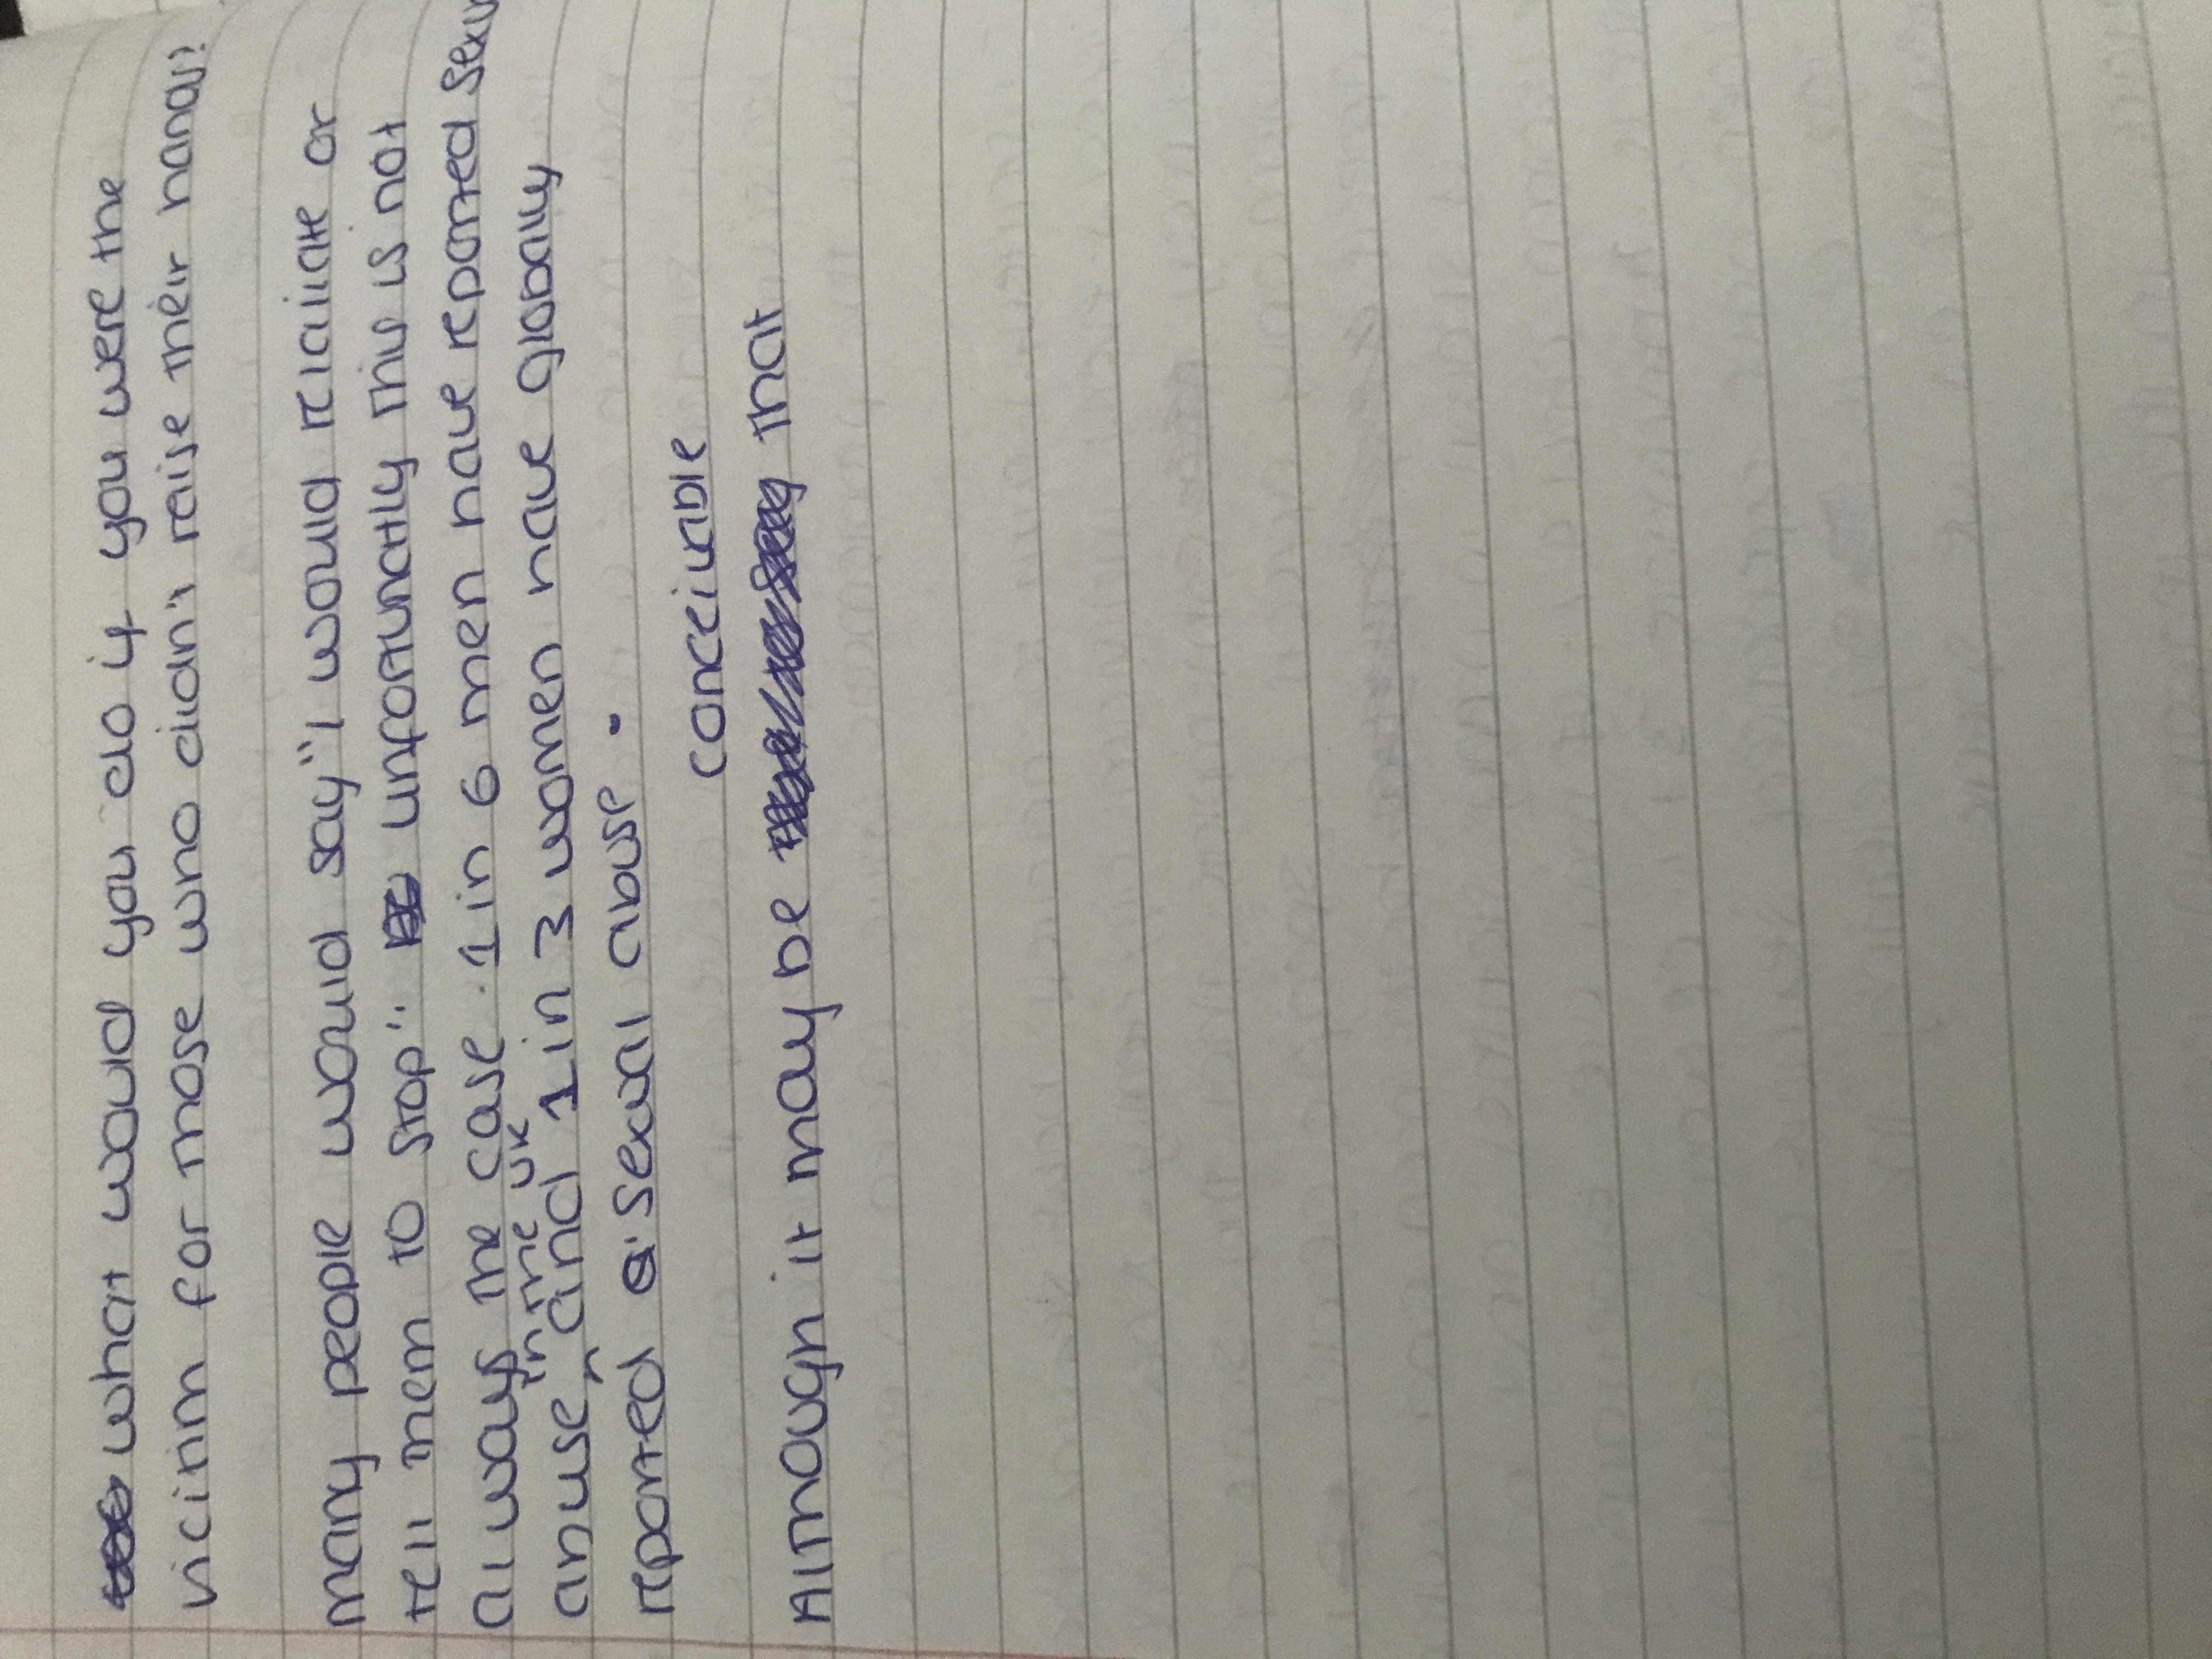 what would you do if you were the
victim for those who didn't raise their hand?
many people would say "I would retaliate or
tell them to stop". unfortunatly this is not
always the case. 1 in 6 men have reported sexu
in the UK
abuse ^ and 1 in 3 women have globally
reported sexual abuse.
conceivable
Although it may be that